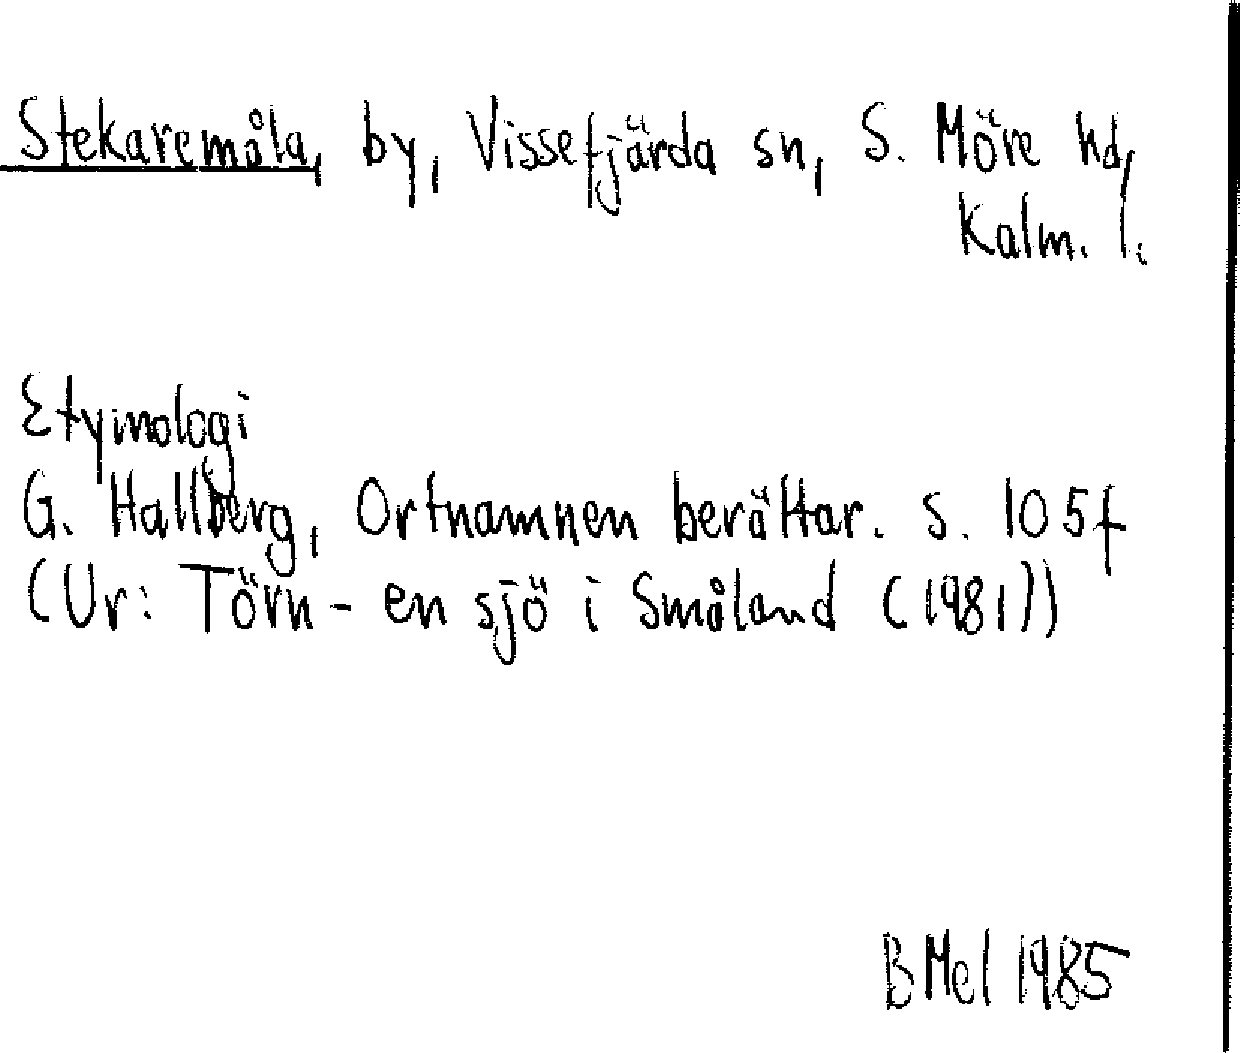 Stekaremåla, by, Vissefjärda sn, S. Möre hd,
Kalm. l.
Etymologi
G. Hallberg, Ortnamnen berättar. s. 105f
(Ur: Törn - en sjö i Småland (1981))
BMel 1985